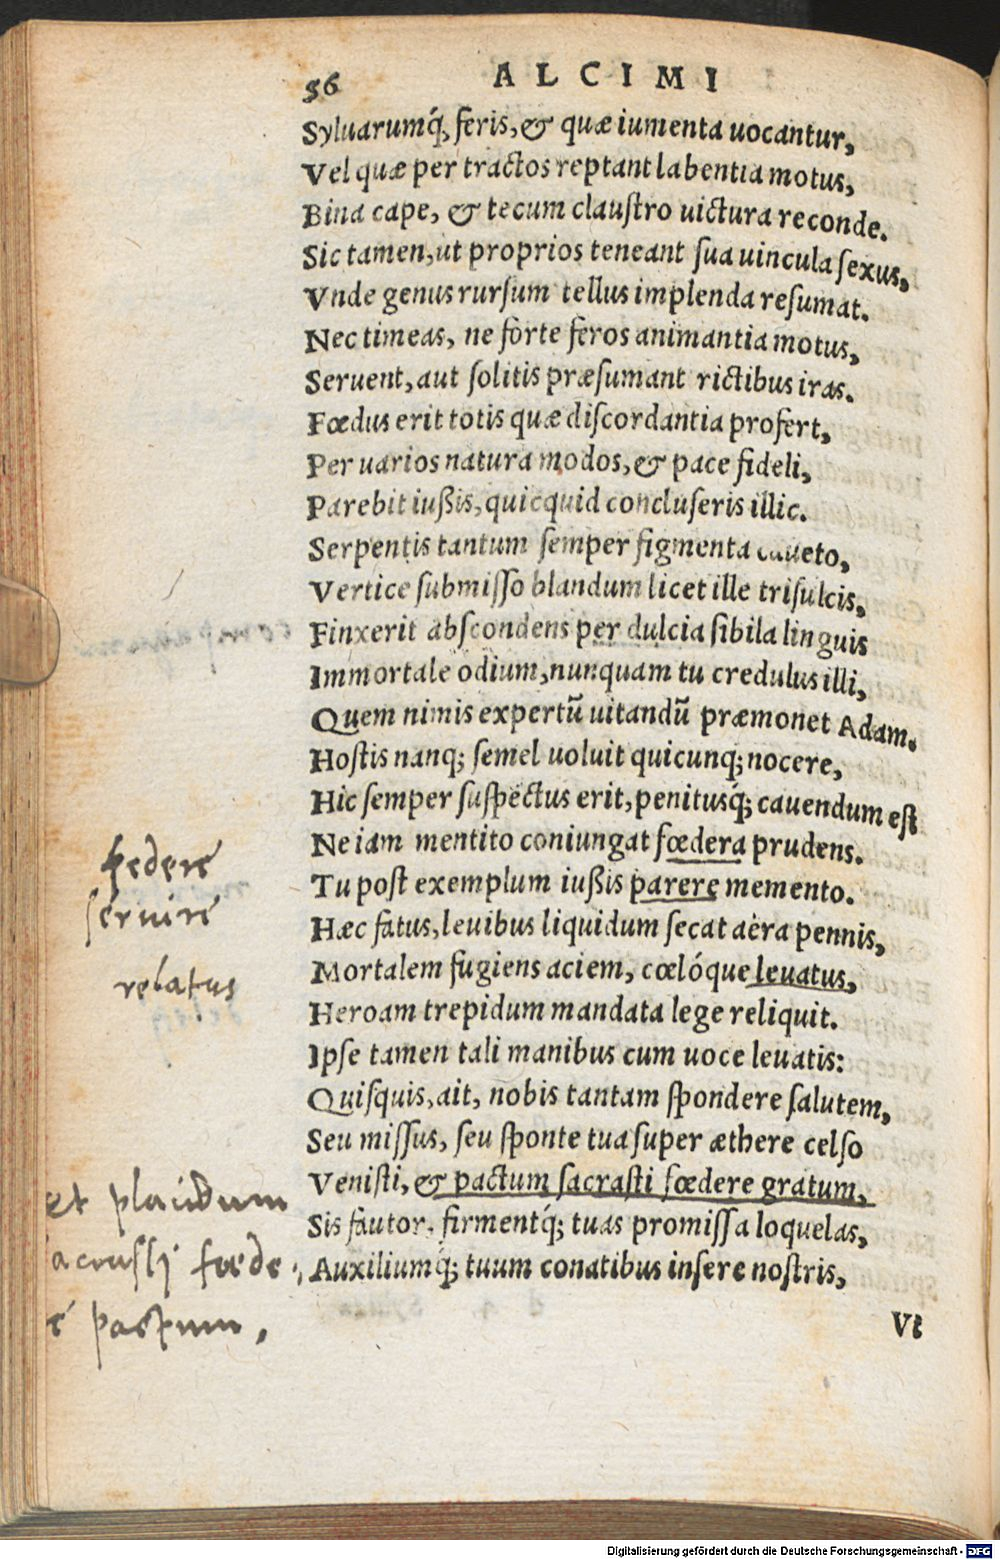 56 ALCIMI
Syluarumq́; feris, & quæ iumenta uocantur,
Vel quæ per tractos reptant labentia motus,
Bina cape, & tecum clauſtro uictura reconde.
Sic tamen, ut proprios teneant ſua uincula ſexus,
Vnde genus rurſum tellus implenda reſumat.
Nec timeas, ne forte feros animantia motus,
Seruent, aut ſolitis præſumant rictibus iras.
Fœdus erit totis quæ diſcordantia profert,
Per uarios natura modos, & pace fideli,
Parebit iußis, quicquid concluſeris illic.
Serpentis tantum ſemper figmenta caueto,
Vertice ſubmiſſo blandum licet ille triſulcis,
Finxerit abſcondens per dulcia ſibila linguis
Immortale odium, nunquam tu credulus illi,
Quem nimis expertū uitandū præmonet Adam.
Hoſtis nanq; ſemel uoluit quicunq; nocere,
Hic ſemper ſuſpectus erit, penitusq́; cauendum eſt
Ne iam mentito coniungat fœdera prudens.
Tu poſt exemplum iußis parere memento.
Hæc fatus, leuibus liquidum ſecat aëra pennis,
Mortalem fugiens aciem, cœlóque leuatus,
Heroam trepidum mandata lege reliquit.
Ipſe tamen tali manibus cum uoce leuatis:
Quiſquis, ait, nobis tantam ſpondere ſalutem,
Seu miſſus, ſeu ſponte tua ſuper æthere celſo
Veniſti, & pactum ſacraſti fœdere gratum,
Sis fautor, firmentq́; tuas promiſſa loquelas,
Auxiliumq́; tuum conatibus inſere noſtris,
Vt
federe
seruire
relatus
et placidum
acrasti fœde
e pactum,
Digitalisierung gefördert durch die Deutsche Forschungsgemeinschaft - DFG